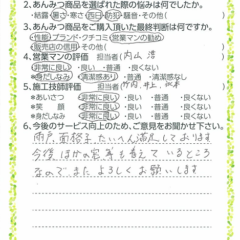 2.あんみつ商品を選ばれた際の悩みは何でしたか。
・結露・暑さ・寒さ・西日・防犯・騒音・その他( )
3.あんみつ商品をご購入頂いた最終判断は何ですか。
・性能・ブランド・クチコミ・営業マンの勧め
・販売店の信用・その他( )
4.営業マンの評価 担当者( 内山 浩 )
・非常に良い ・良い ・普通 ・良くない
・身だしなみ ・清潔感あり ・普通 ・清潔感なし
5.施工技師評価 担当者( 竹内、井上、 )
●あいさつ ・非常に良い ・良い ・普通 ・良くない
●笑 顔 ・非常に良い ・良い ・普通 ・良くない
●身だしなみ ・非常に良い ・良い ・普通 ・良くない
6.今後のサービス向上のため、ご意見をお聞かせ下さい。
雨戸、面格子たいへん満足しております
今後 ほかの窓等も考えているところ
なのでまたよろしくお願いします。